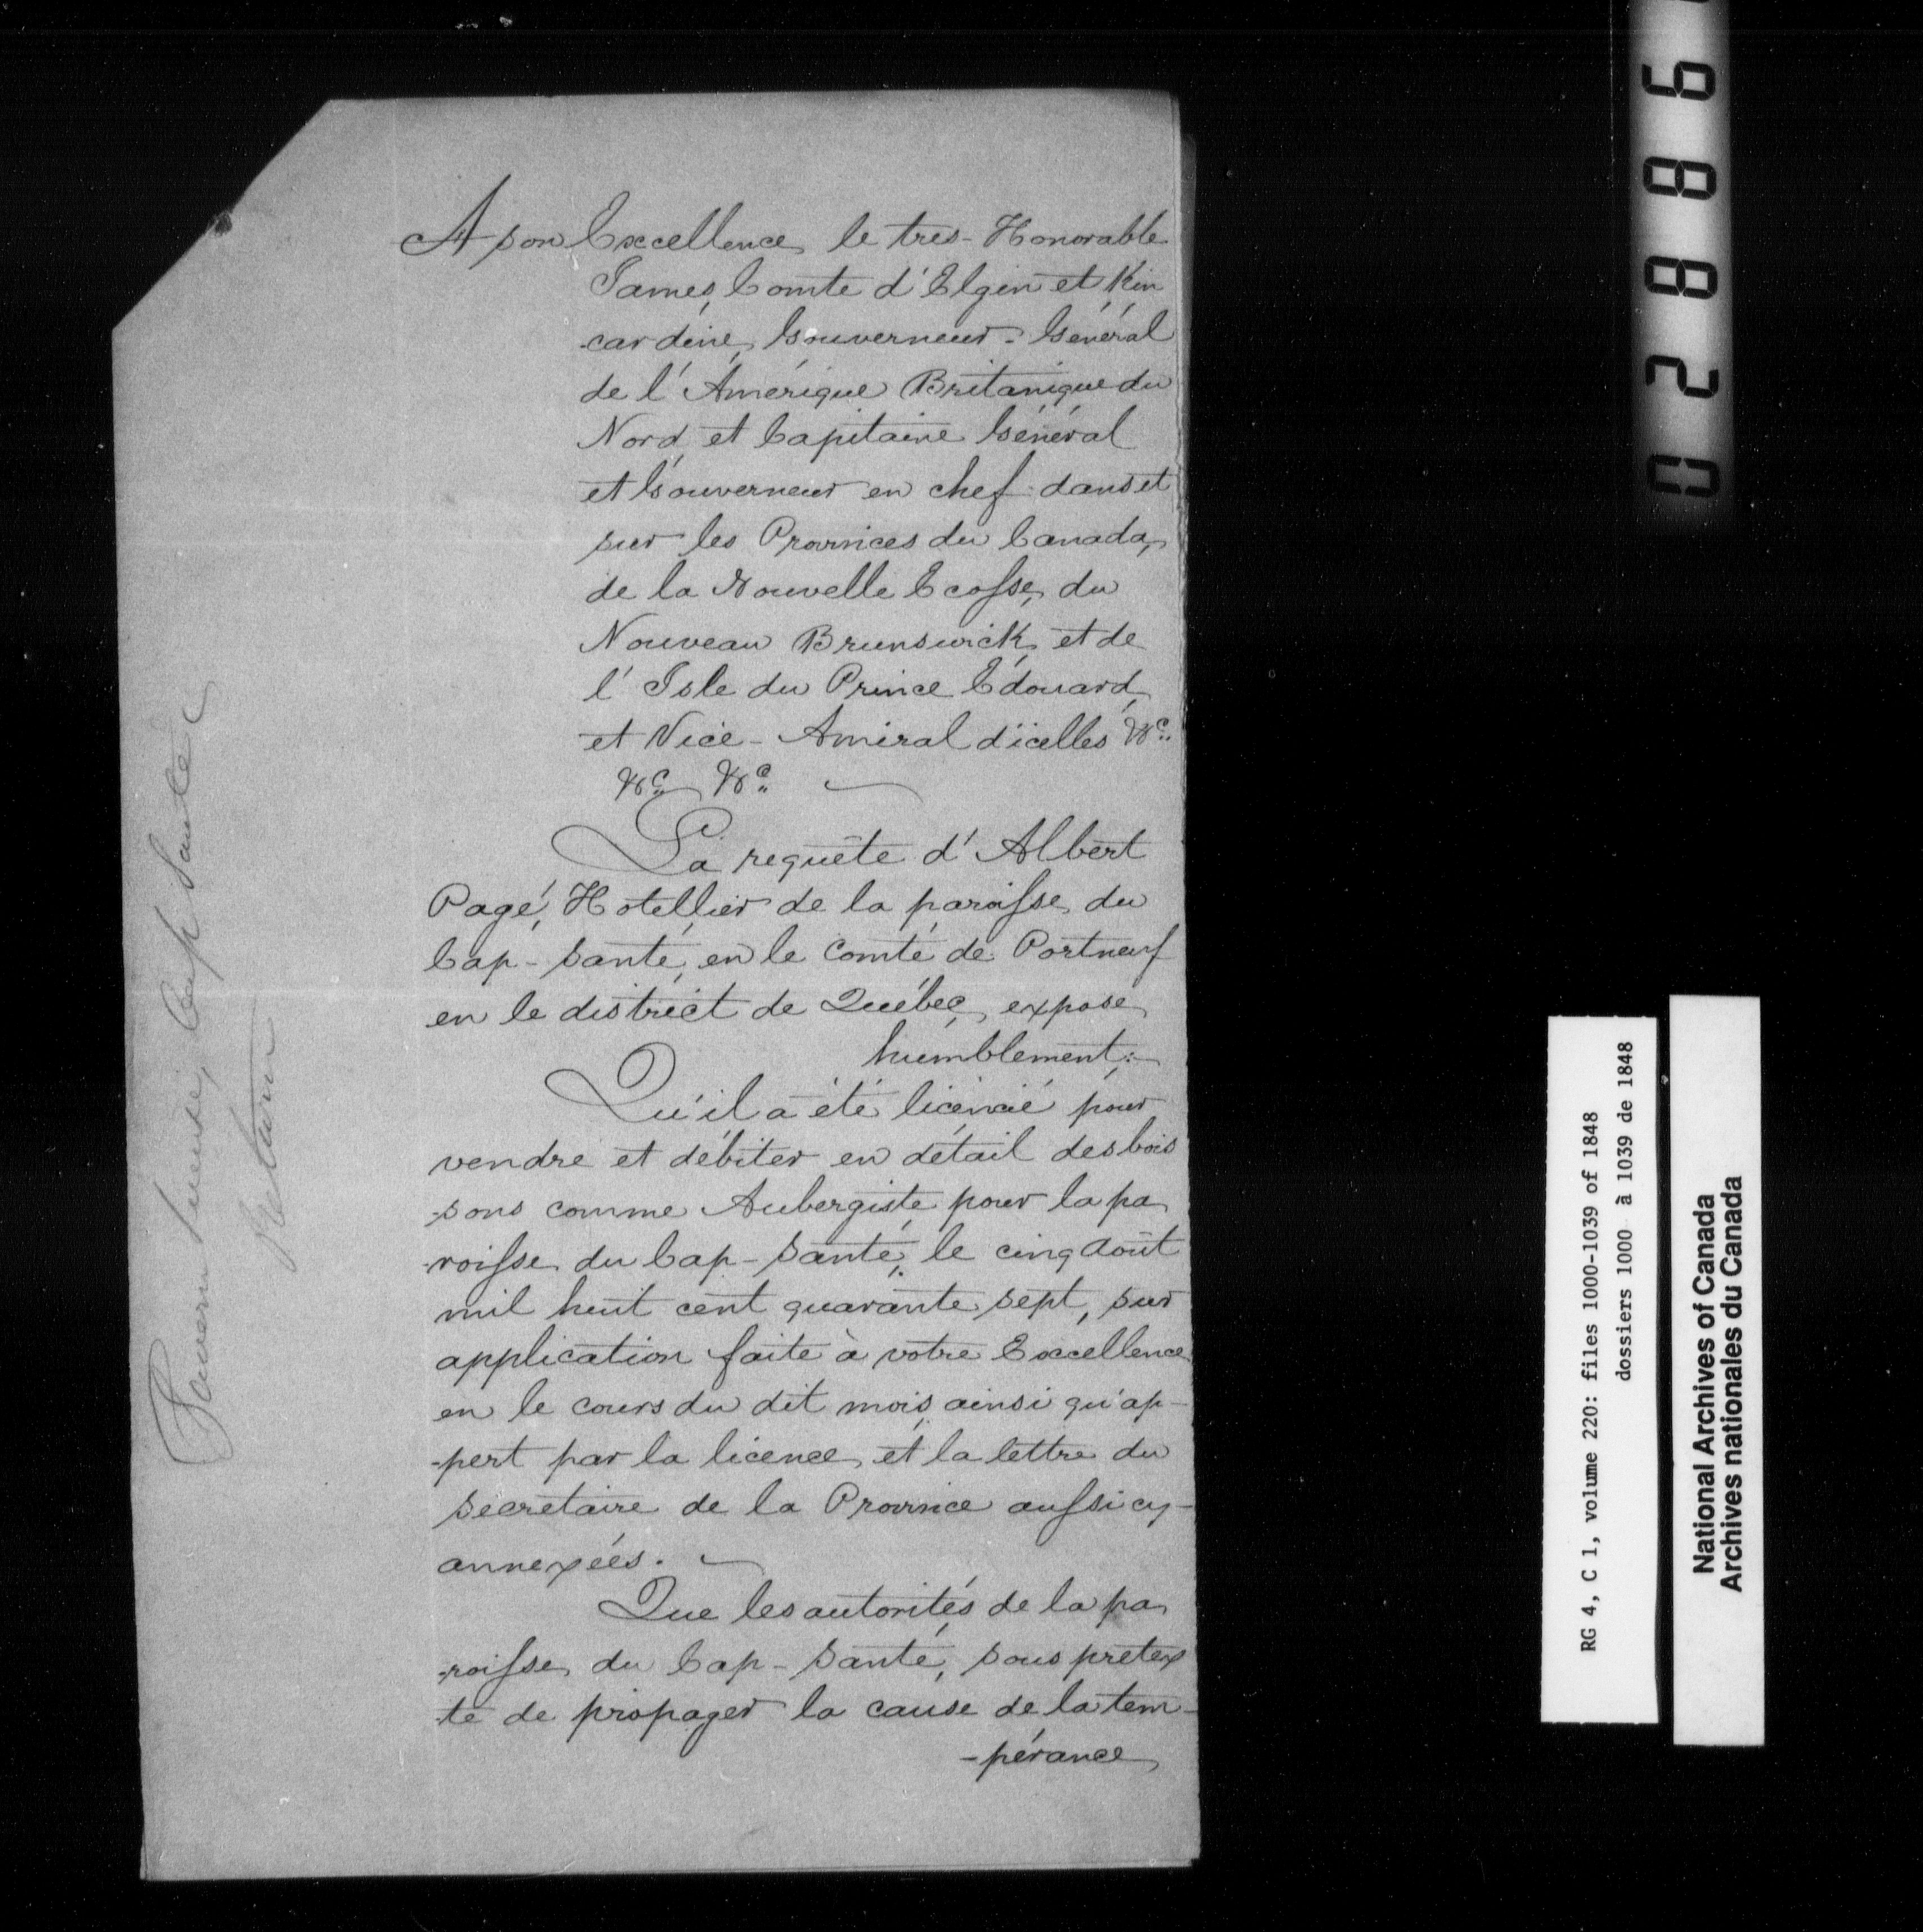 A son Excellence le tres-Honorable
James, Comte d'Elgin et Kin
-cardine, Gouverneur-Général
de l'Amérique Britanique du
Nord, et Capitaine Général
et Gouverneur en chef dans et
sur les Provinces du Canada,
de la Nouvelle Ecosse, du
Nouveau Brunswick, et de
l'Isle du Prince Édouard,
et Vice-Amiral d'icelles &c.
&c. &c.
La requête d'Albert
Pagé, Hotellier de la paroisse du
Cap-Santé, en le comté de Portneuf
en le district de Québec, expose
humblement:-
Qu'il a été licencié pour
vendre et débiter en détail des bois
-sons comme Aubergiste pour la pa
-roisse du Cap-Santé, le cinq Août
mil huit cent quarante sept, sur
application faite à votre Excellence
en le cours du dit mois, ainsi qu'ap-
-pert par la licence, et la lettre du
secrétaire de la Province aussi cy-
annexées.
Que les autorités de la pa
-roisse du Cap-Santé, sous pretex
-te de propager la cause de la tem-
-pérance
Tavern License, Cap Santé
Return
02886
RG 4, C 1, volume 220: files 1000-1039 of 1848
dossiers 1000 à 1039 de 1848
National Archives of Canada
Archives nationales du Canada